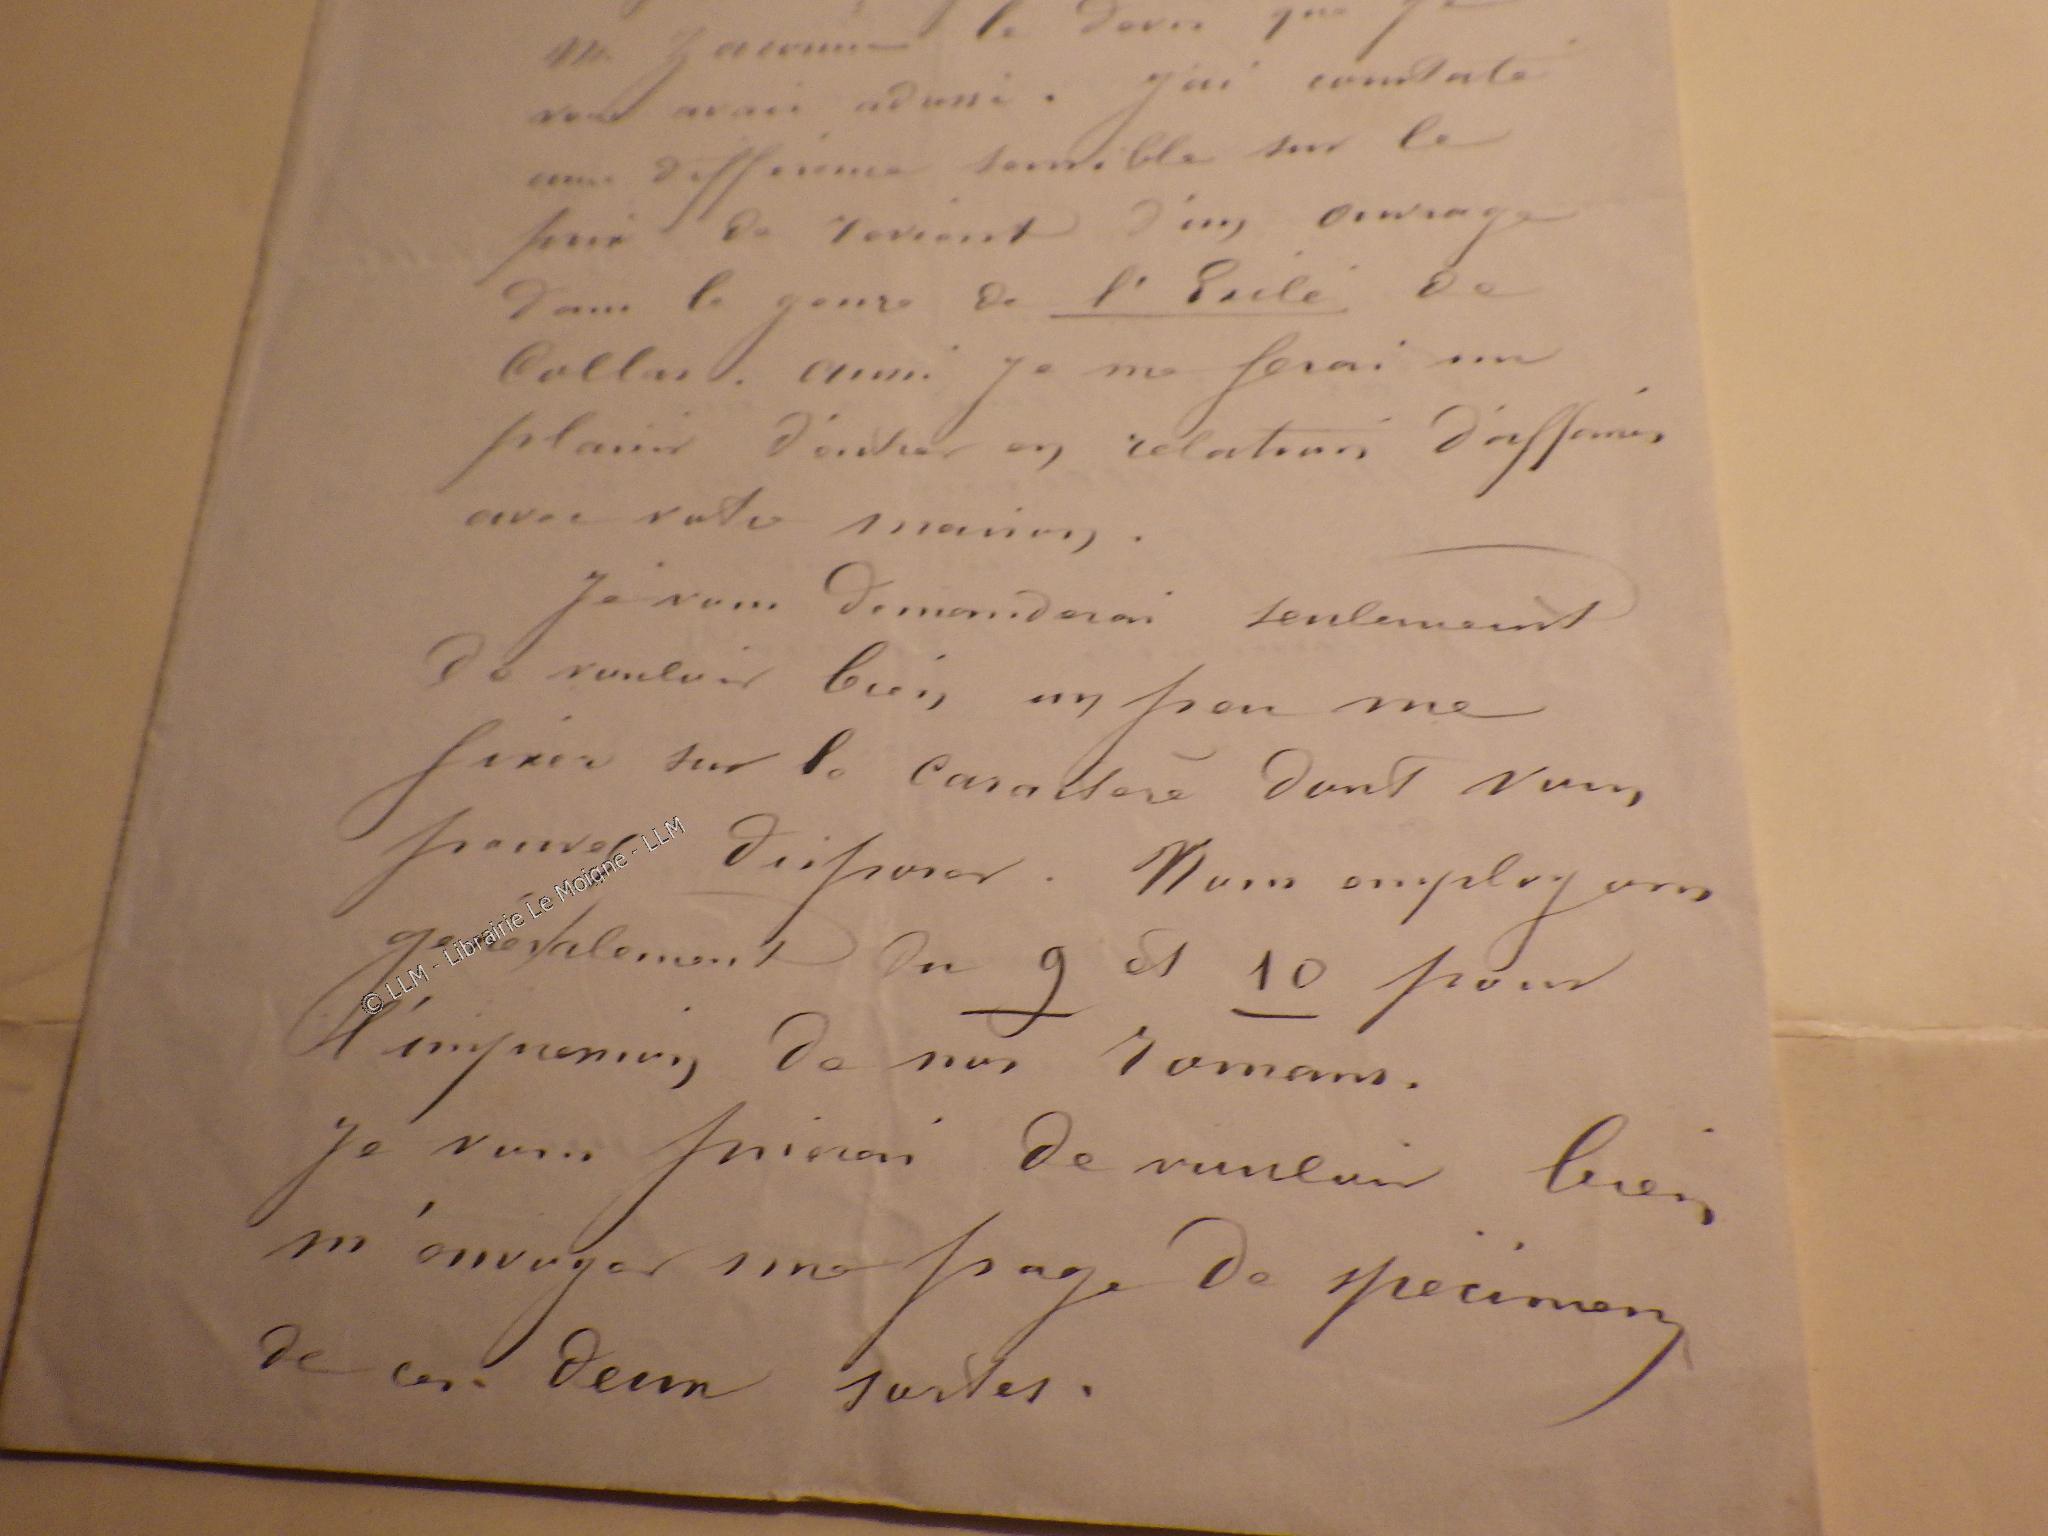 le devis que je
vous avais adressé. J'ai constaté
une différence sensible sur le
prix de revient d'un ouvrage
dans le genre de l'Exilé de
Collas. aussi je me ferai un
plaisir d'entrer en relations d'affaires
avec votre maison.
Je vous demanderai seulement
de vouloir bien un peu me
fixer sur le caractère dont vous
pouvez disposer. Nous employons
généralement du 9 et 10 pour
l'impression de nos romans.
Je vous prierai de vouloir bien
m'envoyer une page de spécimen
de ces deux sortes.
© LLM - Librairie Le Moigne - LLM